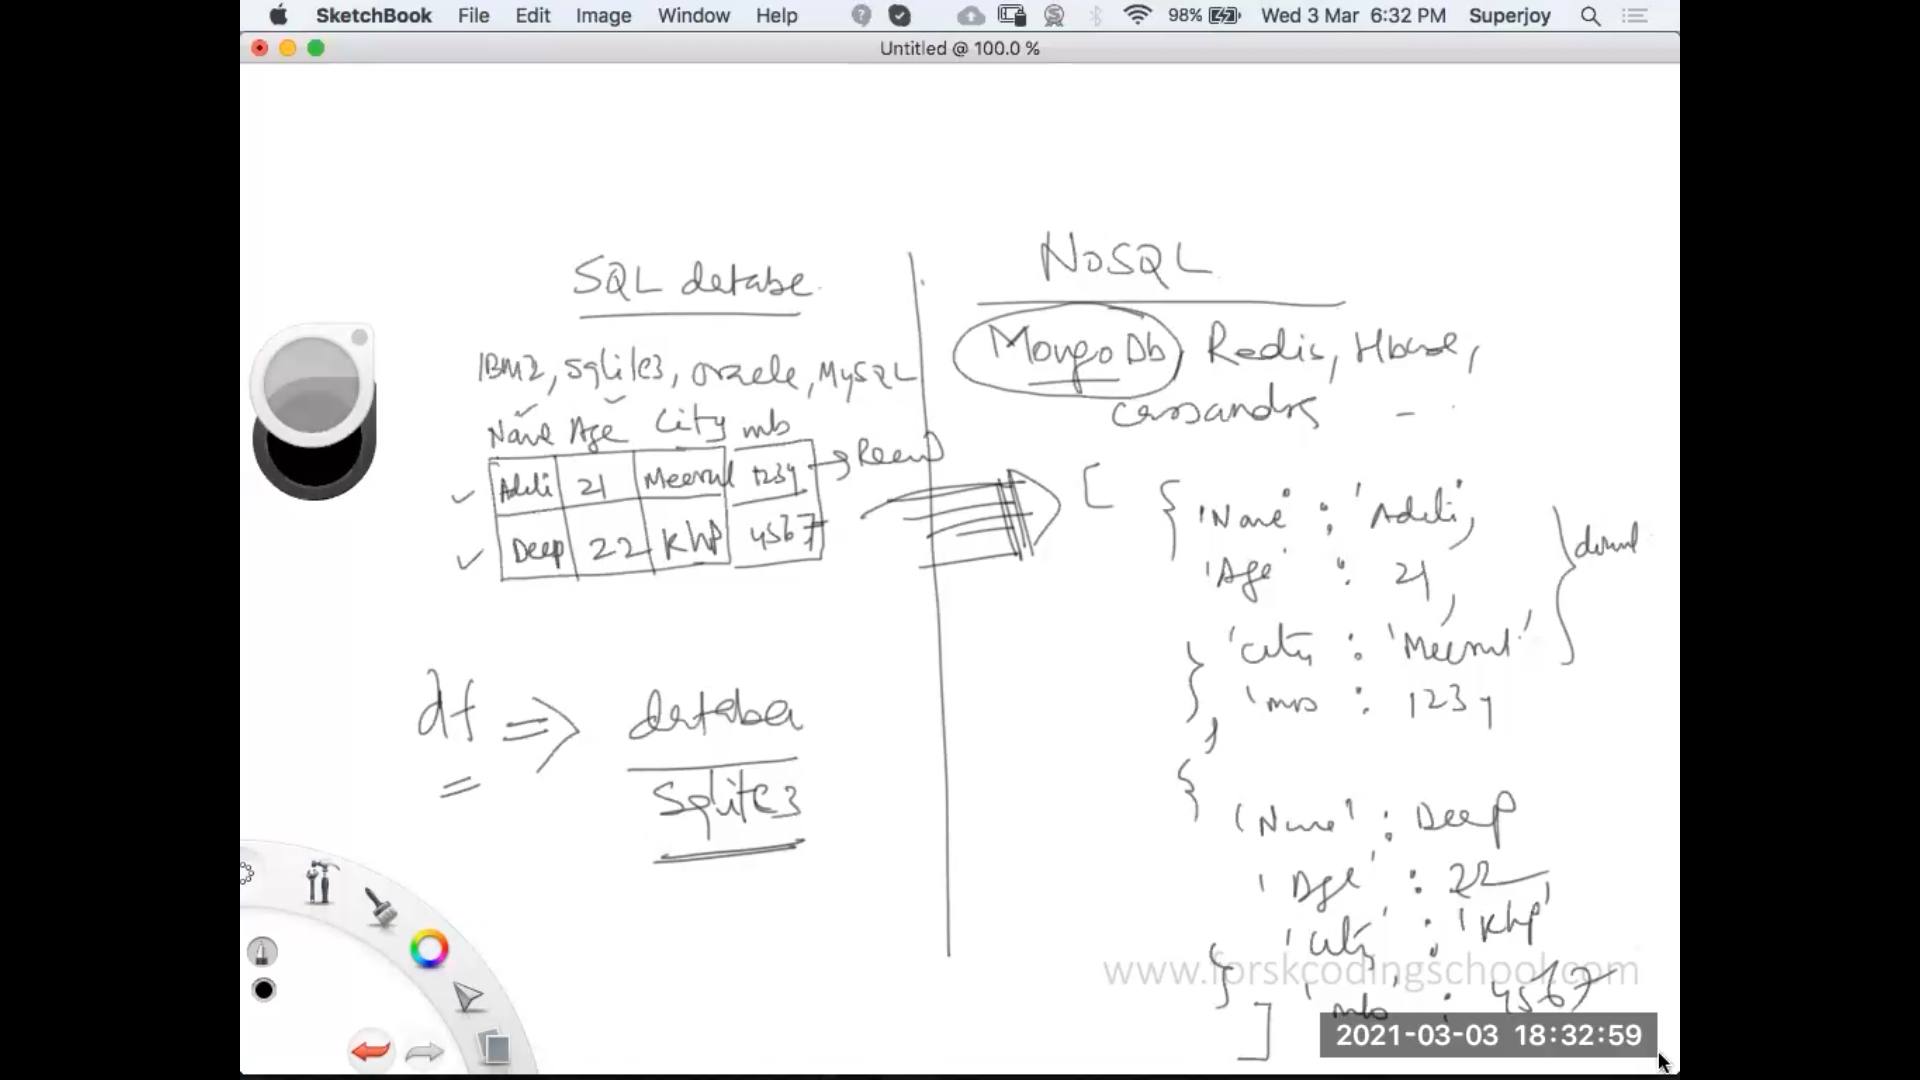 SketchBook File Edit Image Window Help 98% Wed 3 Mar 6:32 PM Superjoy
Untitled @ 100.0 %
SQL databe
IBM2, sqlite3, oracle, MySQL
Name Age City mb
Aditi 21 Meerut 1234
Deep 22 KhP 4567
df => databa
=
Sqlite3
NoSQL
MongoDb, Redis, Hbase,
Cassandra -
[ { 'Name' : 'Aditi',
'Age' : 21,
'City : 'Meerut'
}, 'mb : 1234
{
'Name' : Deep
'Age' : 22
'City' : 'Khp'
} 'mb' : 4567
]
www.forskcodingschool.com
2021-03-03 18:32:59